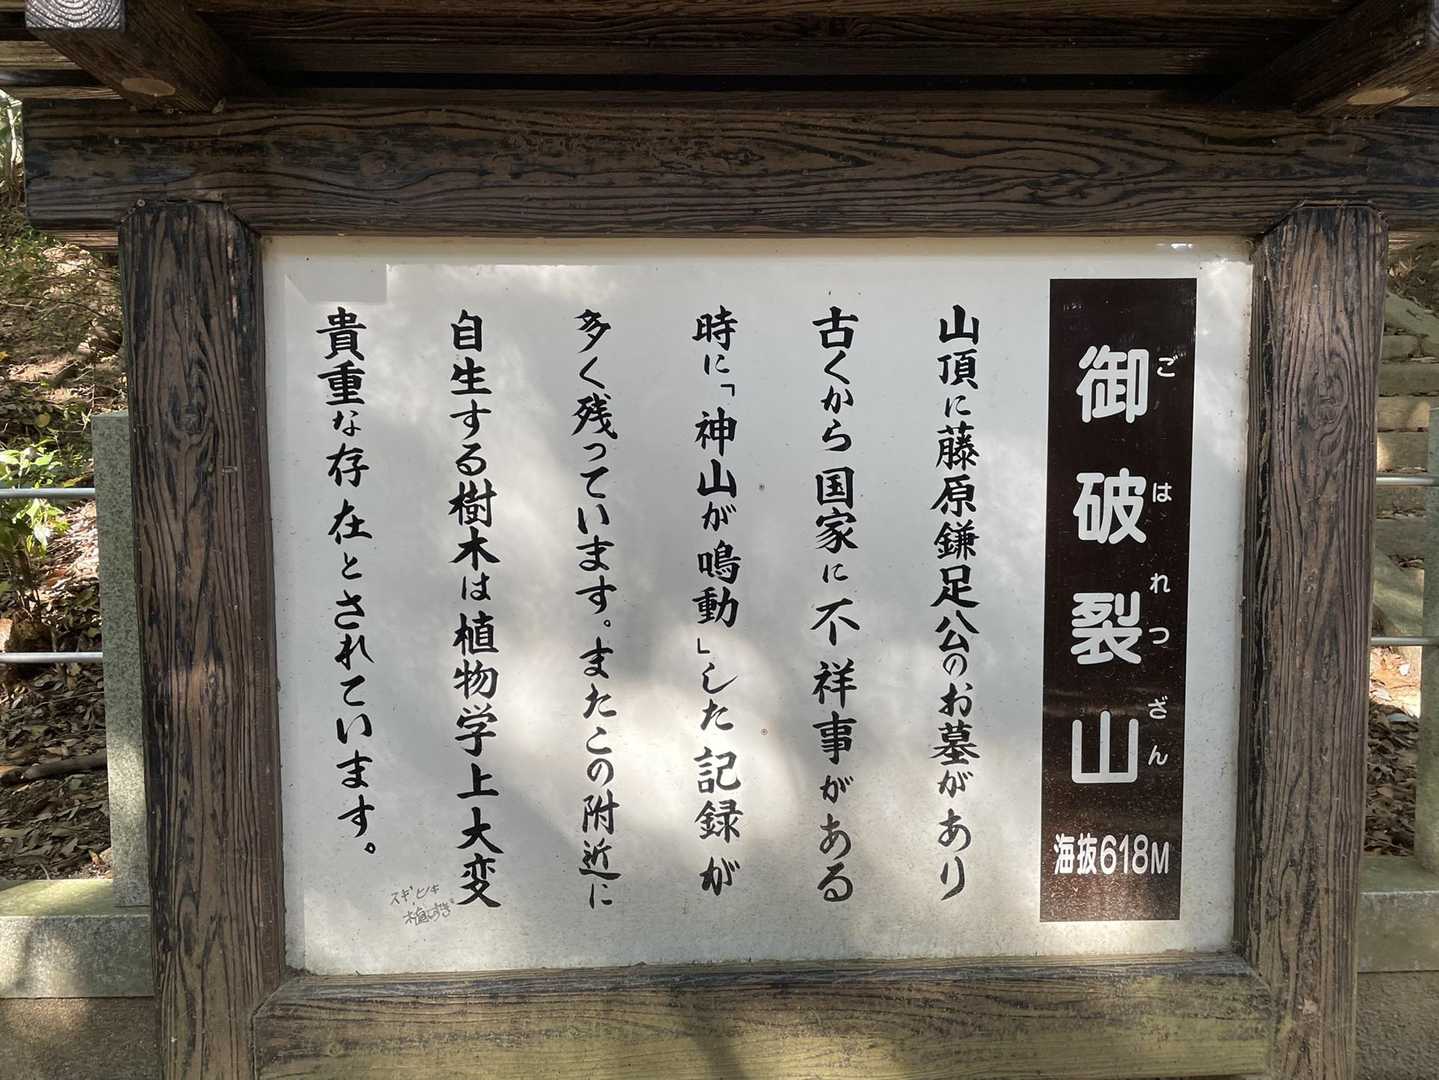 御破裂山
ごはれつざん
海抜618M
山頂に藤原鎌足公のお墓があり
古くから国家に不祥事がある
時に「神山が鳴動」した記録が
多く残っています。またこの附近に
自生する樹木は植物学上大変
貴重な存在とされています。
スギ・ヒノキ